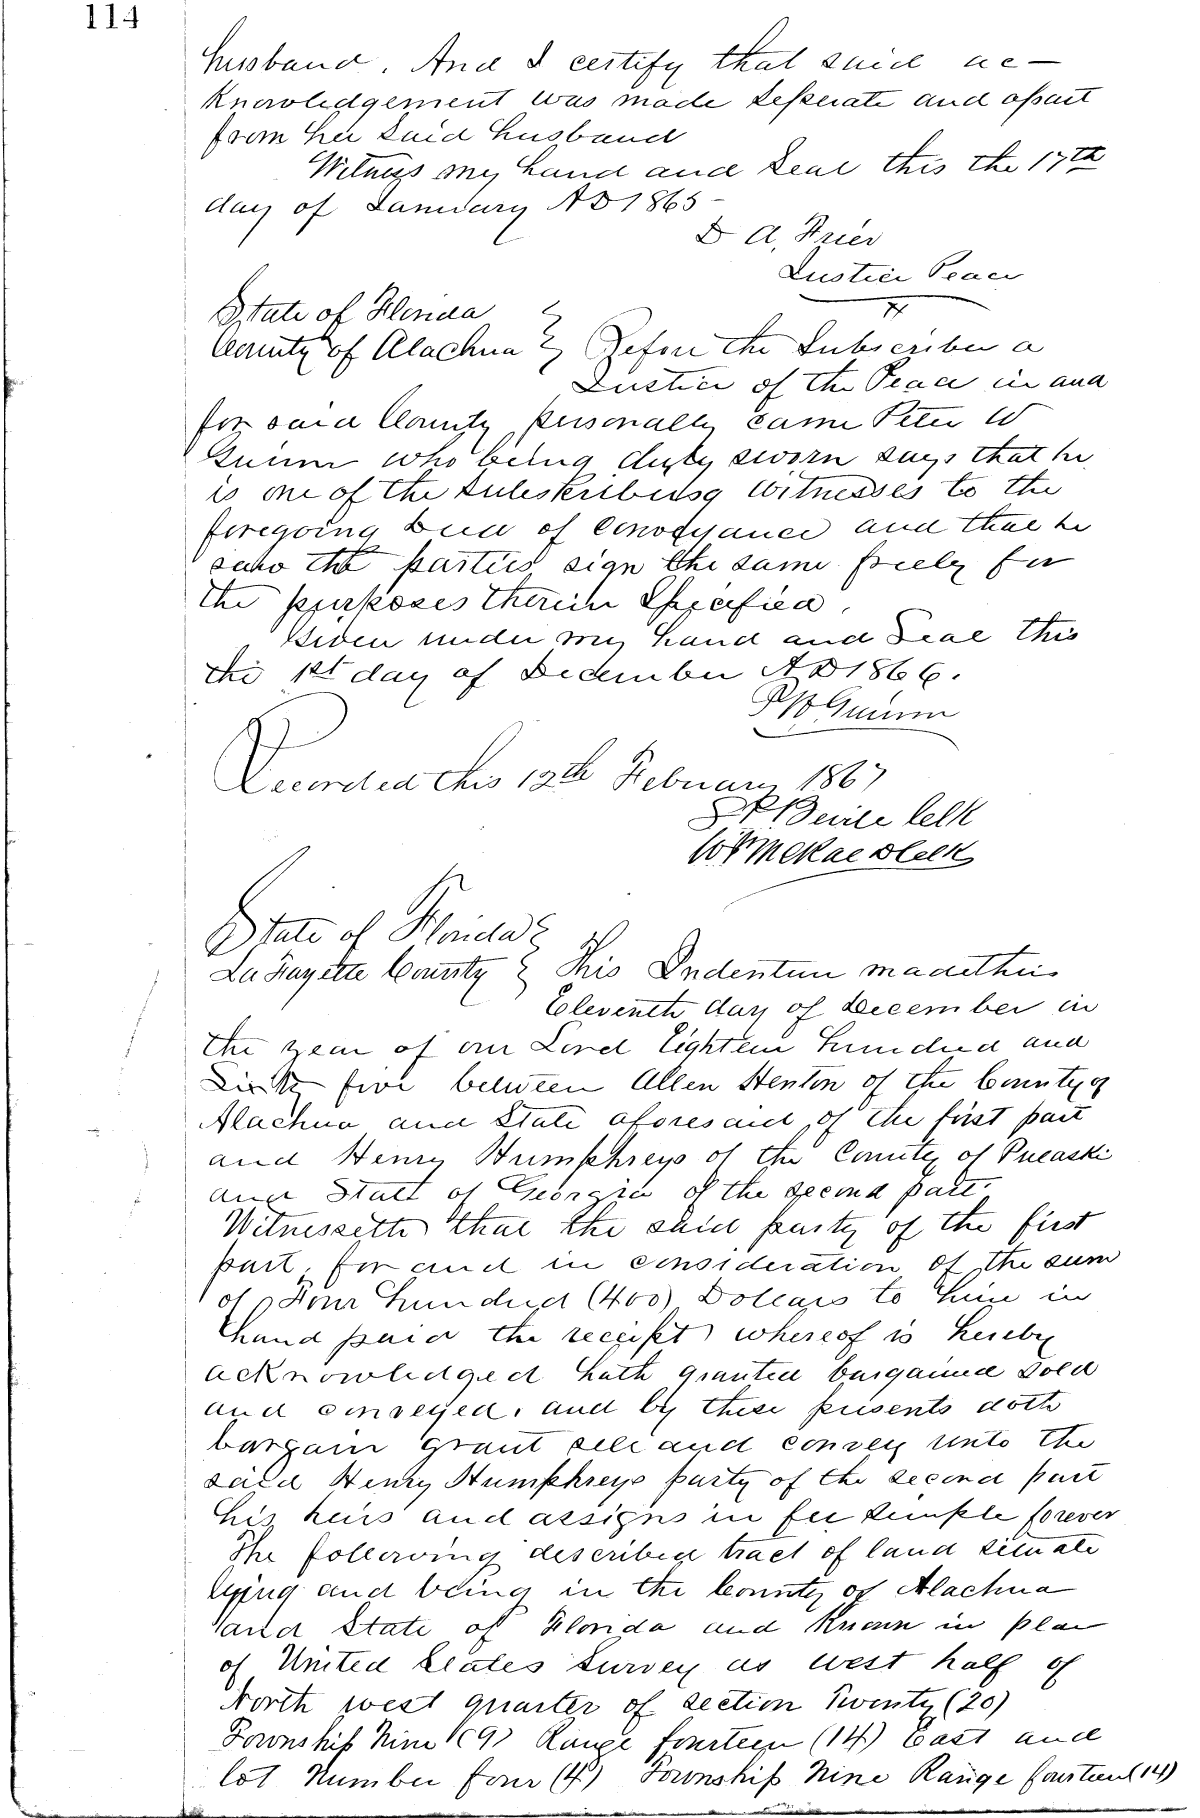 114
husband. And I certify that said ac-
knowledgement was made seperate and apart
from her said husband
Witness my hand and seal this the 17th
day of January AD 1865-
D A, Frier
Justice Peace
State of Florida
County of Alachua } Before the Subscriber a
Justice of the Peace in and
for said County personally came Peter W
Guinn who being duly sworn says that he
is one of the subskribing witnesses to the
foregoing Deed of Conveyance and that he
saw the parties sign the same freely for
the purposes therein Specified.
Given under my hand and Seal this
the 1st day of December AD 1866.
P W Guinn
Recorded this 12th February 1867
Bevile Clk
McRae D Clk
State of Florida }
LaFayette County } This Indenture made this
Eleventh day of December in
the year of our Lord Eighteen hundred and
Sixty five between Allen Henton of the County of
Alachua and State aforesaid, of the first part
and Henry Humphreys of the County of Pulaski
and State of Georgia of the second part.
Witnesseth that the said party of the first
part, for and in consideration of the sum
of Four hundred (400) Dollars to him in
hand paid the receipt whereof is hereby
acknowledged hath granted bargained sold
and conveyed, and by these presents doth
bargain grant sell and convey unto the
said Henry Humphreys party of the second part
his heirs and assigns in fee simple forever
The following described tract of land situate
lying and being in the County of Alachua
and State of Florida and known in plan
of United States survey as west half of
North west quarter of section Twenty (20)
Township Nine (9) Range fourteen (14) East and
lot Number four (4) Township Nine Range fourteen (14)